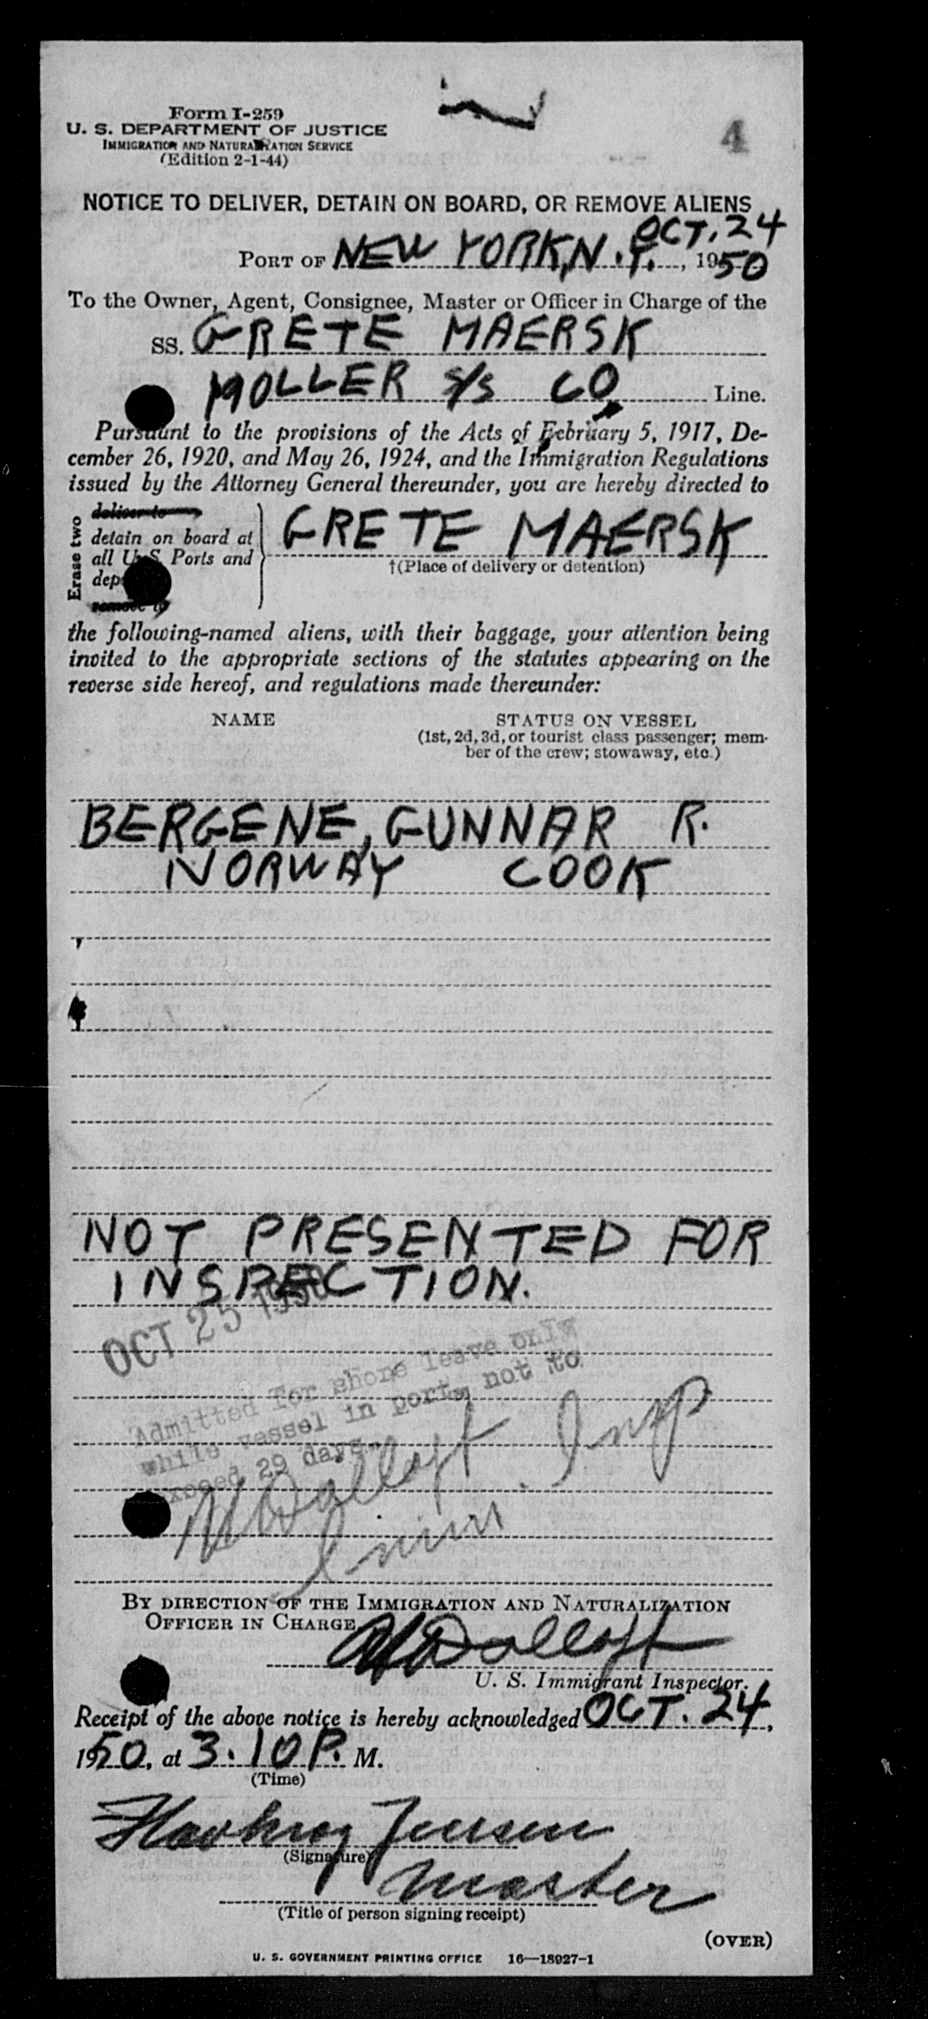 Form I-259
U. S. DEPARTMENT OF JUSTICE
IMMIGRATION AND NATURALIZATION SERVICE
(Edition 2-1-44)
4
NOTICE TO DELIVER, DETAIN ON BOARD, OR REMOVE ALIENS
OCT. 24
PORT OF NEW YORK, N.Y., 1950
To the Owner, Agent, Consignee, Master or Officer in Charge of the
SS. GRETE MAERSK
MOLLER S/S CO. Line.
Pursuant to the provisions of the Acts of February 5, 1917, De-
cember 26, 1920, and May 26, 1924, and the Immigration Regulations
issued by the Attorney General thereunder, you are hereby directed to
Erase two
deliver to
detain on board at
all U. S. Ports and
GRETE MAERSK
†(Place of delivery or detention)
remove to
the following-named aliens, with their baggage, your attention being
invited to the appropriate sections of the statutes appearing on the
reverse side hereof, and regulations made thereunder:
NAME STATUS ON VESSEL
(1st, 2d, 3d, or tourist class passenger; mem-
ber of the crew; stowaway, etc.)
BERGENE, GUNNAR R.
NORWAY COOK
NOT PRESENTED FOR
INSPECTION.
OCT 25 1950
Admitted for shore leave only
while vessel in port, not to
exceed 29 days.
Imm. Insp
BY DIRECTION OF THE IMMIGRATION AND NATURALIZATION
OFFICER IN CHARGE
U. S. Immigrant Inspector.
Receipt of the above notice is hereby acknowledged OCT. 24,
1950, at 3.10 P. M.
(Time)
Jensen
(Signature)
Master
(Title of person signing receipt)
(OVER)
U. S. GOVERNMENT PRINTING OFFICE 16—18927-1